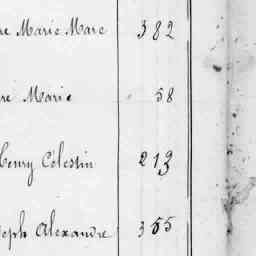 re Marie Marc 382
re Marie 58
Henry Célestin 213
seph Alexandre 355